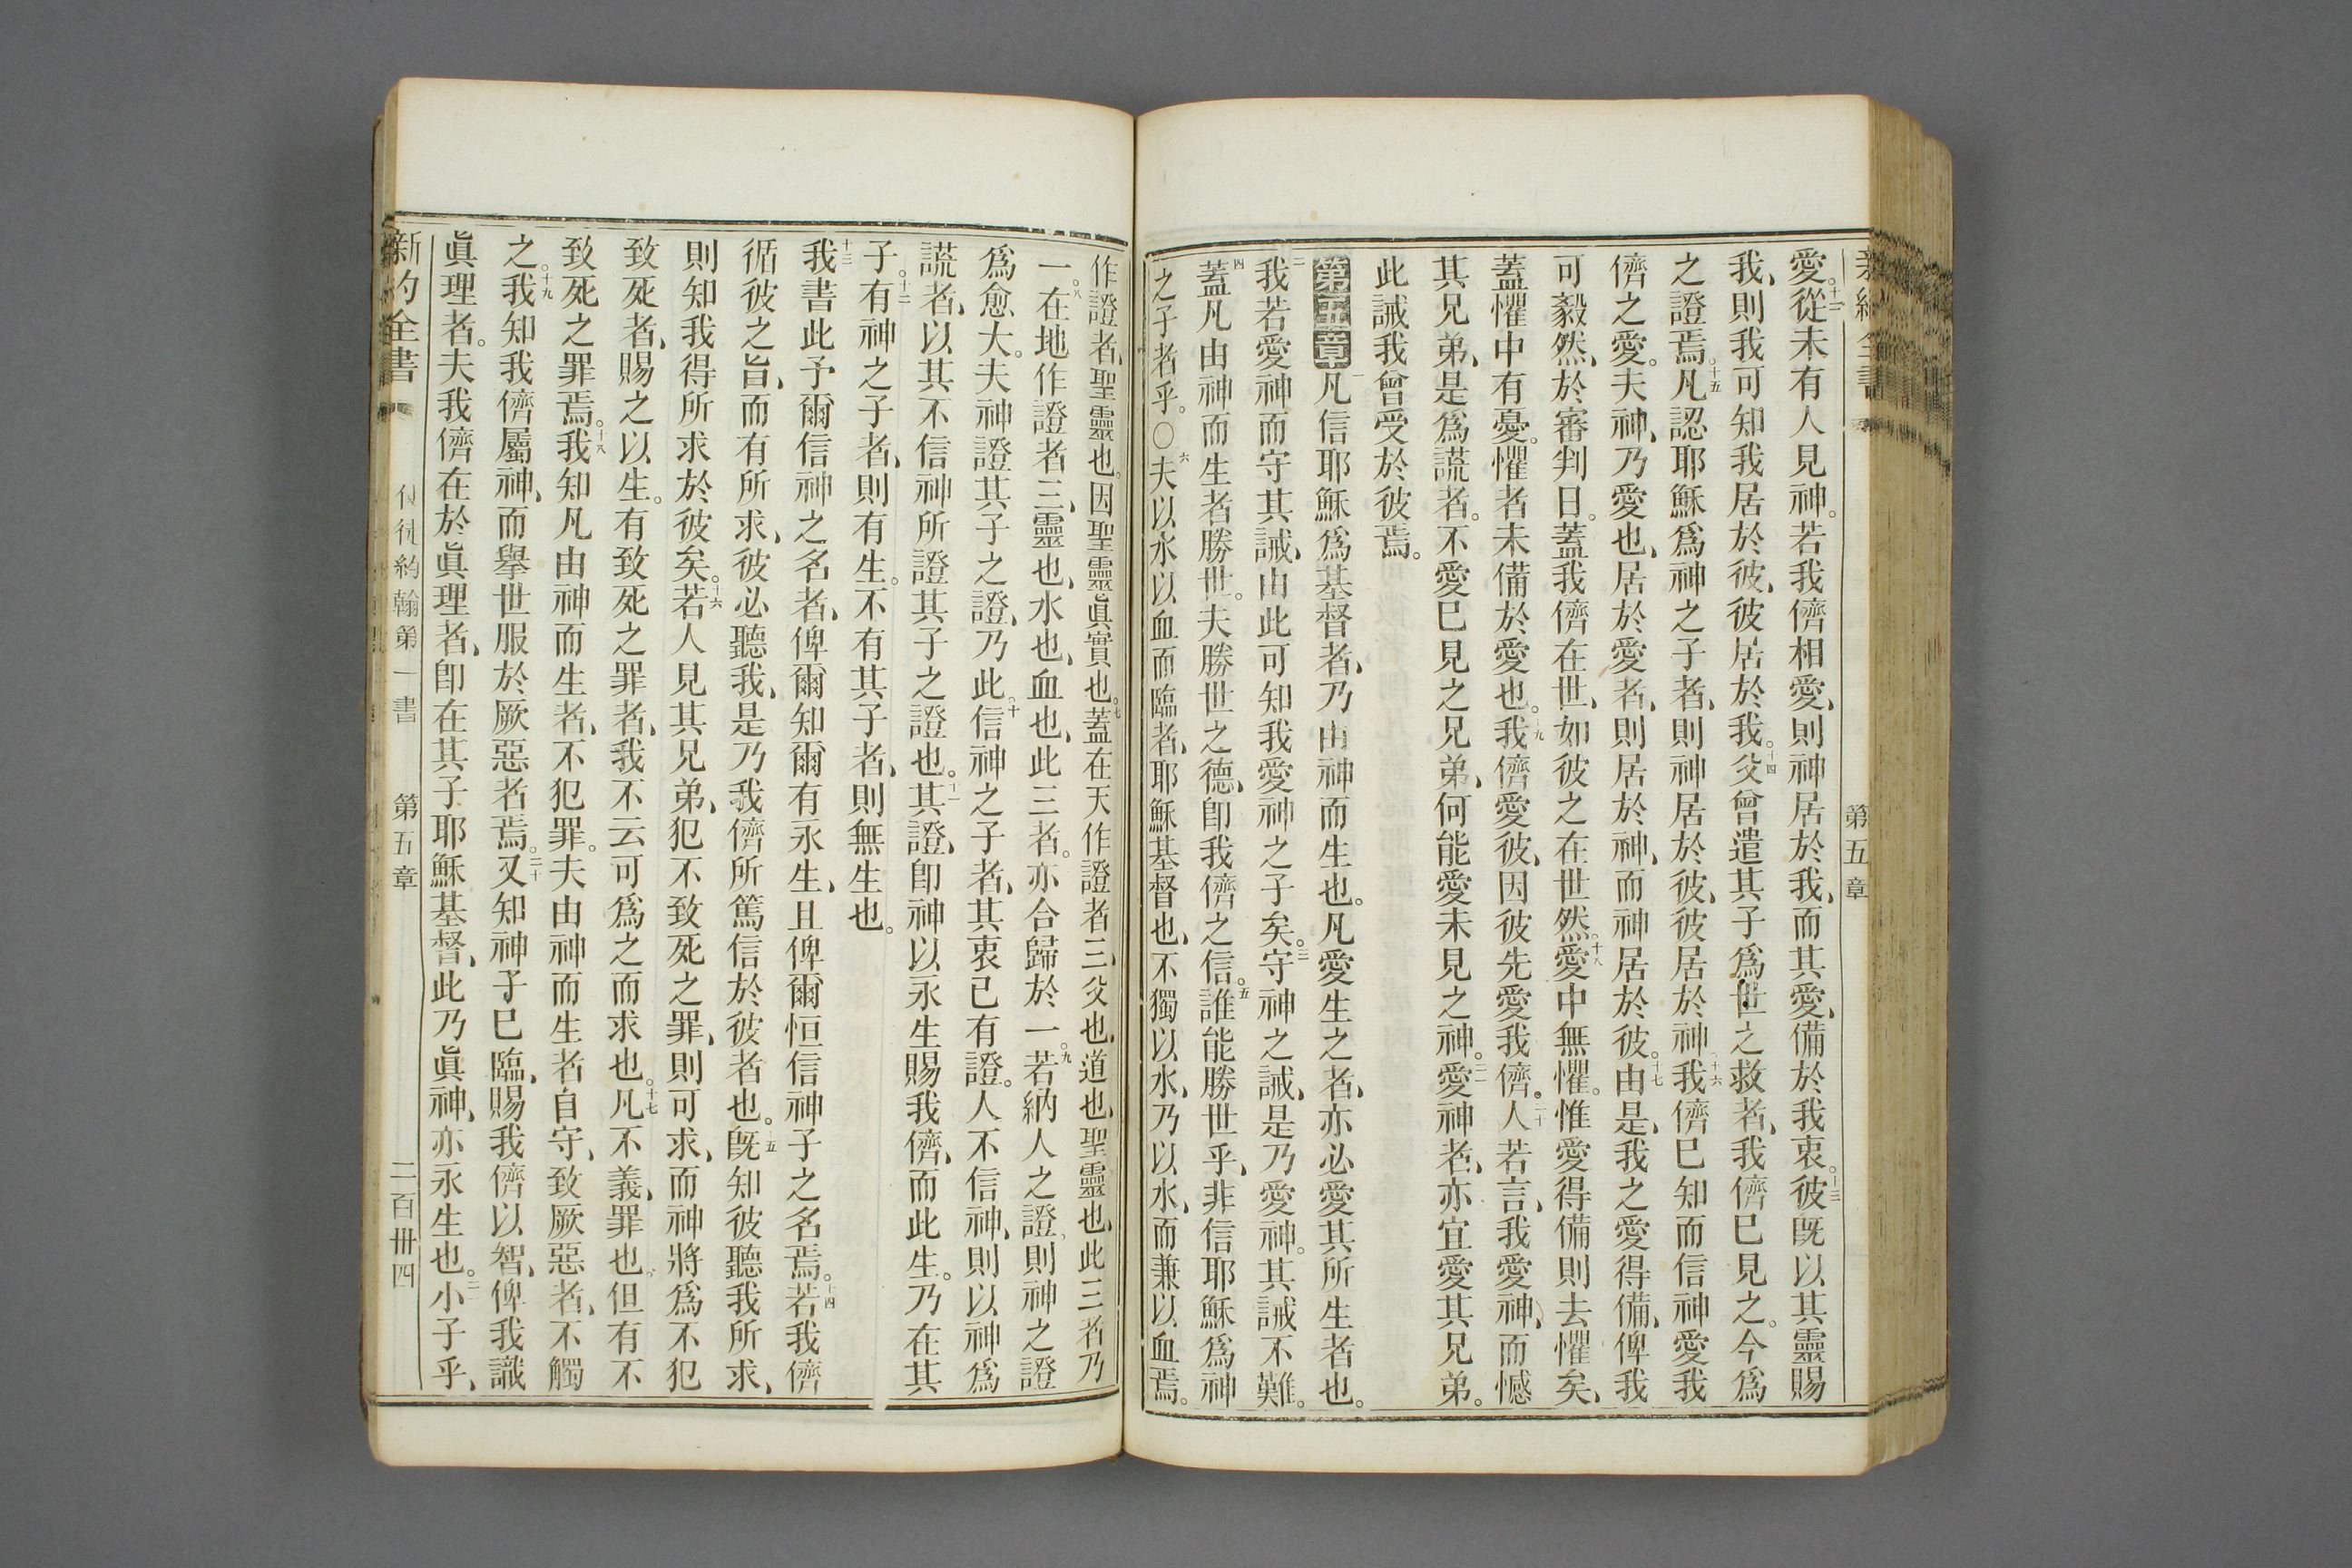 第五章
愛。十二從未有人見神。若我儕相愛、則神居於我、而其愛、備於我衷。十三彼既以其靈賜
我、則我可知我居於彼、彼居於我。十四父曾遣其子爲世之救者、我儕已見之。今爲
之證焉。十五凡認耶穌爲神之子者、則神居於彼、彼居於神。十六我儕已知而信神愛我
儕之愛。夫神、乃愛也、居於愛者、則居於神、而神居於彼。十七由是、我之愛得備、俾我
可毅然、於審判日。蓋我儕在世、如彼之在世然。十八愛中無懼。惟愛得備則去懼矣、
蓋懼中有憂。懼者未備於愛也。十九我儕愛彼、因彼先愛我儕。二十人若言、我愛神、而憾
其兄弟、是爲謊者。不愛已見之兄弟、何能愛未見之神。二一愛神者、亦宜愛其兄弟。
此誡我曾受於彼焉。
第五章一凡信耶穌爲基督者、乃由神而生也。凡愛生之者、亦必愛其所生者也。
二我若愛神而守其誡、由此可知我愛神之子矣。三守神之誡、是乃愛神。其誡不難。
四蓋凡由神而生者勝世。夫勝世之德、卽我儕之信。五誰能勝世乎、非信耶穌爲神
之子者乎。〇六夫以水以血而臨者、耶穌基督也、不獨以水、乃以水、而兼以血焉。
作證者、聖靈也。因聖靈眞實也。七蓋在天作證者三、父也、道也、聖靈也、此三者乃
一。八在地作證者三、靈也、水也、血也、此三者。亦合歸於一。九若納人之證、則神之證
爲愈大。夫神證其子之證、乃此。十信神之子者、其衷已有證。人不信神、則以神爲
謊者、以其不信神所證其子之證也。十一其證、卽神以永生賜我儕、而此生。乃在其
子。十二有神之子者、則有生。不有其子者、則無生也。
十三我書此予爾信神之名者、俾爾知爾有永生、且俾爾恒信神子之名焉。十四若我儕
循彼之旨、而有所求、彼必聽我、是乃我儕所篤信於彼者也。五既知彼聽我所求、
則知我得所求於彼矣。十六若人見其兄弟、犯不致死之罪、則可求、而神將爲不犯
致死者、賜之以生。有致死之罪者、我不云可爲之而求也。十七凡不義、罪也。但有不
致死之罪焉。十八我知凡由神而生者、不犯罪。夫由神而生者自守、致厥惡者、不觸
之。十九我知我儕屬神、而舉世服於厥惡者焉。二十又知神子已臨、賜我儕以智、俾我識
眞理者。夫我儕在於眞理者、卽在其子耶穌基督、此乃眞神、亦永生也。二一小子乎、
新約全書 使徒約翰第一書 第五章 二百卅四